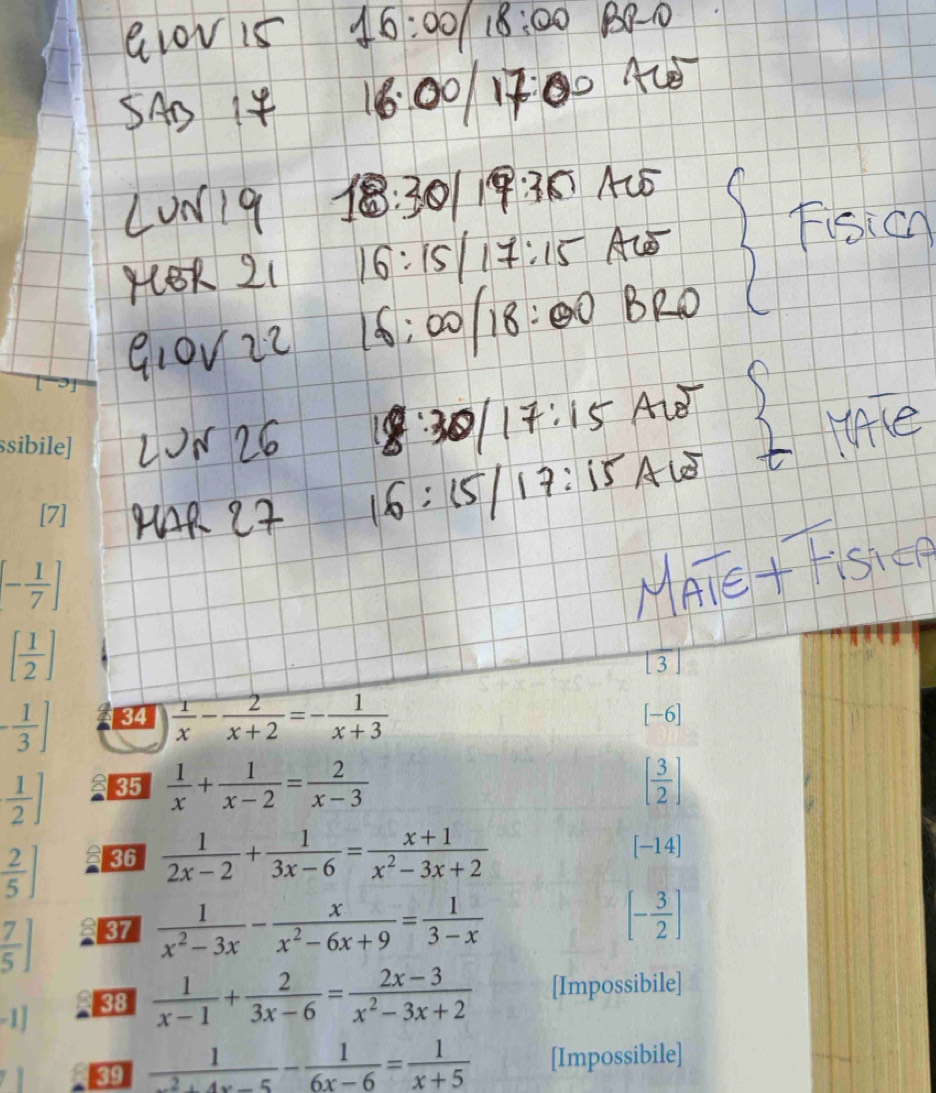 GIOV 15 16:00/18:00 BRO
SAB 17 16:00/17:00
LUN 19 18:30/19:30
MER 21 16:15/17:15
FISICA
GIOV 22 16:00/18:00 BRO
LUN 26 18:30/17:15
MATE
MAR 27 16:15/17:15
MATE + FISICA
ssibile]
[7]
[-1/7]
[1/2]
-1/3]
1/2]
2/5]
7/5]
-1]
3]
34 1/x - 2/(x+2) = -1/(x+3) [-6]
35 1/x + 1/(x-2) = 2/(x-3) [3/2]
36 1/(2x-2) + 1/(3x-6) = (x+1)/(x²-3x+2) [-14]
37 1/(x²-3x) - x/(x²-6x+9) = 1/(3-x) [-3/2]
38 1/(x-1) + 2/(3x-6) = (2x-3)/(x²-3x+2) [Impossibile]
39 1/(x²+4x-5) - 1/(6x-6) = 1/(x+5) [Impossibile]